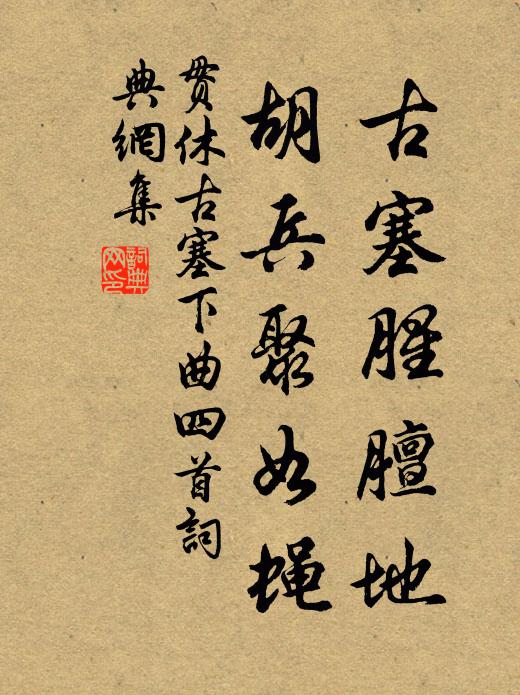 古塞腥膻地
胡兵聚如蝇
贯休古塞下曲四首詞
典網集
詞典网印